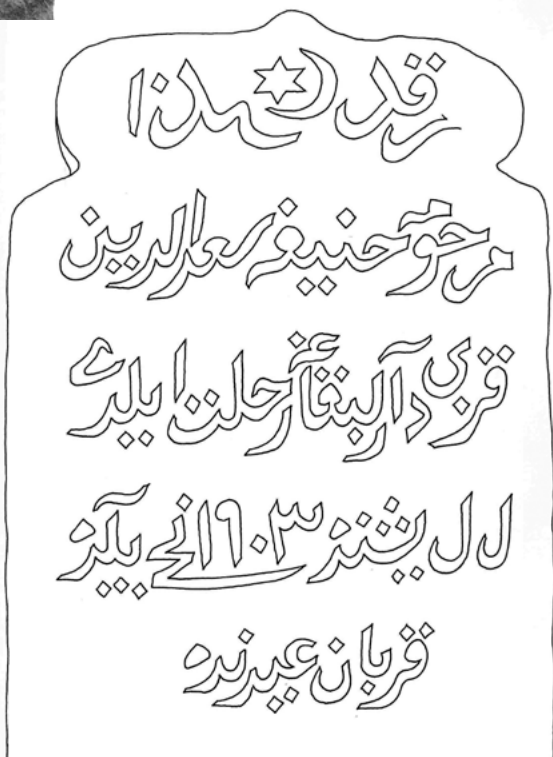 رقد هذا
مرحومه حنيفه سعدالدين
قزی دارالبقاغه رحلت ايلدے
ل ل يشنده ١٩٠٣ انچے ييلده
قربان عيدنده